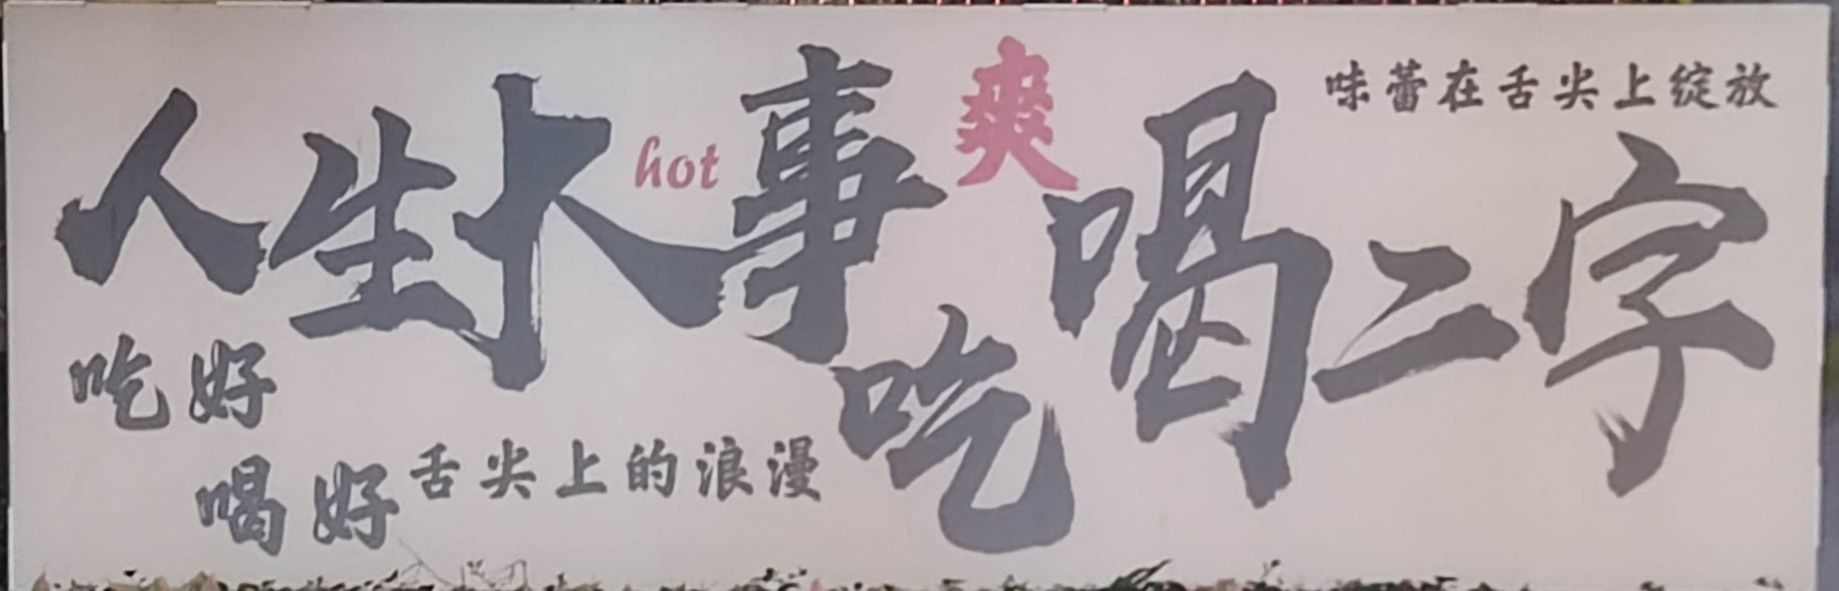 人生大事吃喝二字
hot
爽
味蕾在舌尖上绽放
吃好
喝好
舌尖上的浪漫